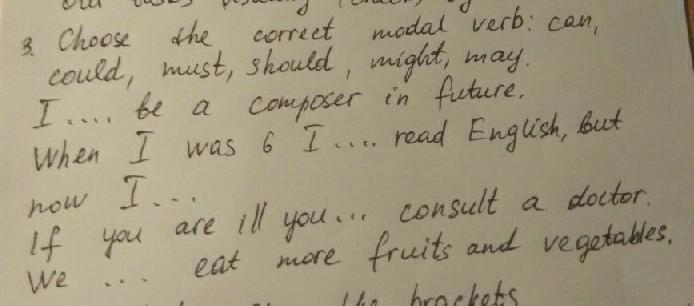 3. Choose the correct modal verb: can,
could, must, should, might, may.
I .... be a composer in future.
When I was 6 I .... read English, but
now I ...
If you are ill you ... consult a doctor.
We ... eat more fruits and vegetables.
the brackets